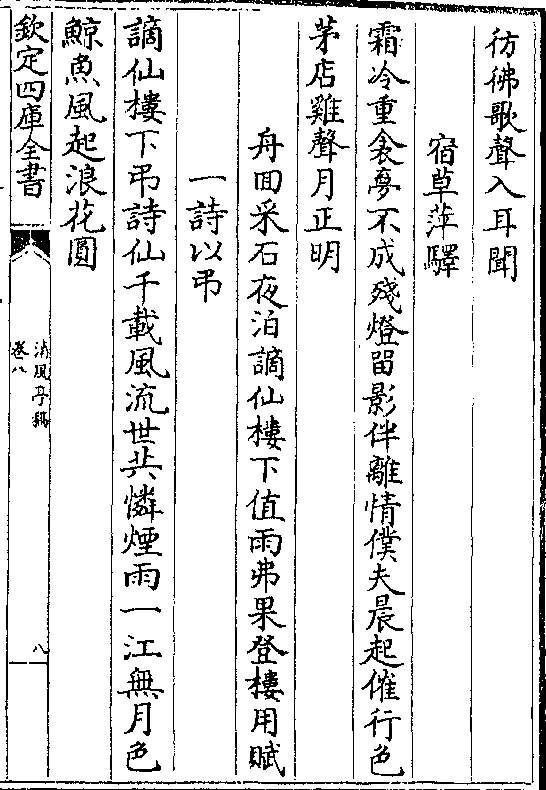 彷彿歌聲入耳聞
宿草萍驛
霜冷重衾夢不成殘燈留影伴離情僕夫晨起催行色
茅店雞聲月正明
舟回采石夜泊謫仙樓下值雨弗果登樓用賦
一詩以弔
謫仙樓下弔詩仙千載風流世共憐煙雨一江無月色
鯨魚風起浪花圓
欽定四庫全書
清風亭稿
卷八
八